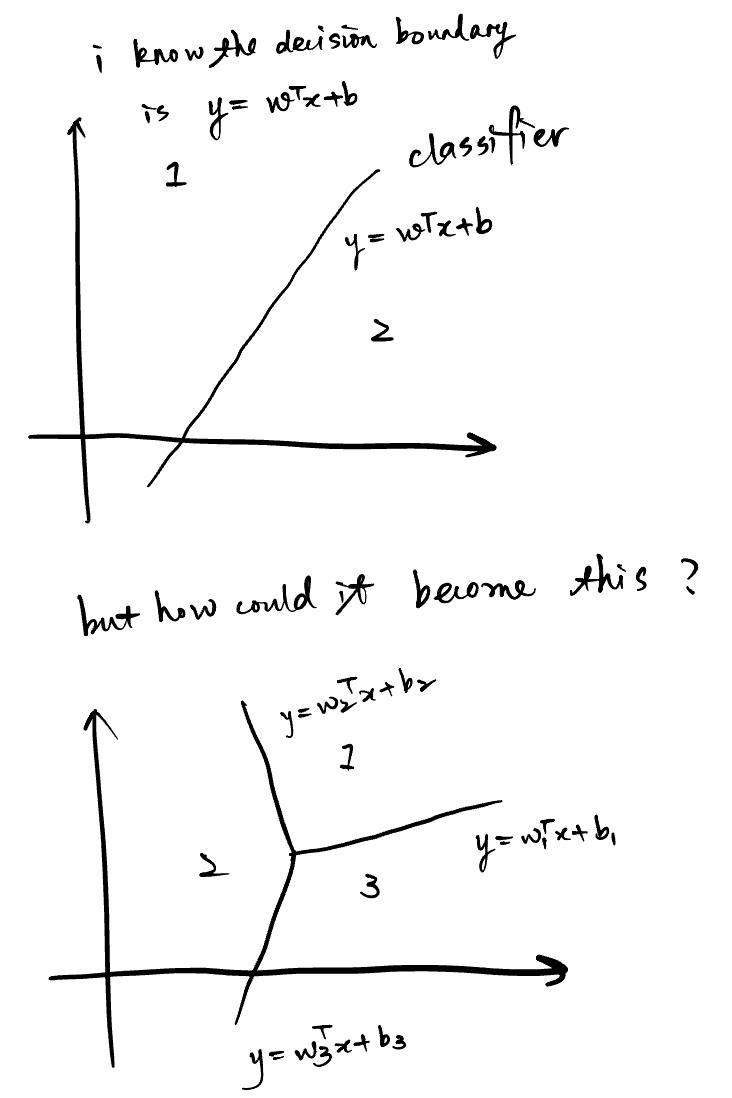 i know the decision boundary
is y = wᵀx+b
1
classifier
y = wᵀx+b
2
but how could it become this ?
y = w₂ᵀx+b₂
1
2
y = w₁ᵀx+b₁
3
y = w₃ᵀx+b₃